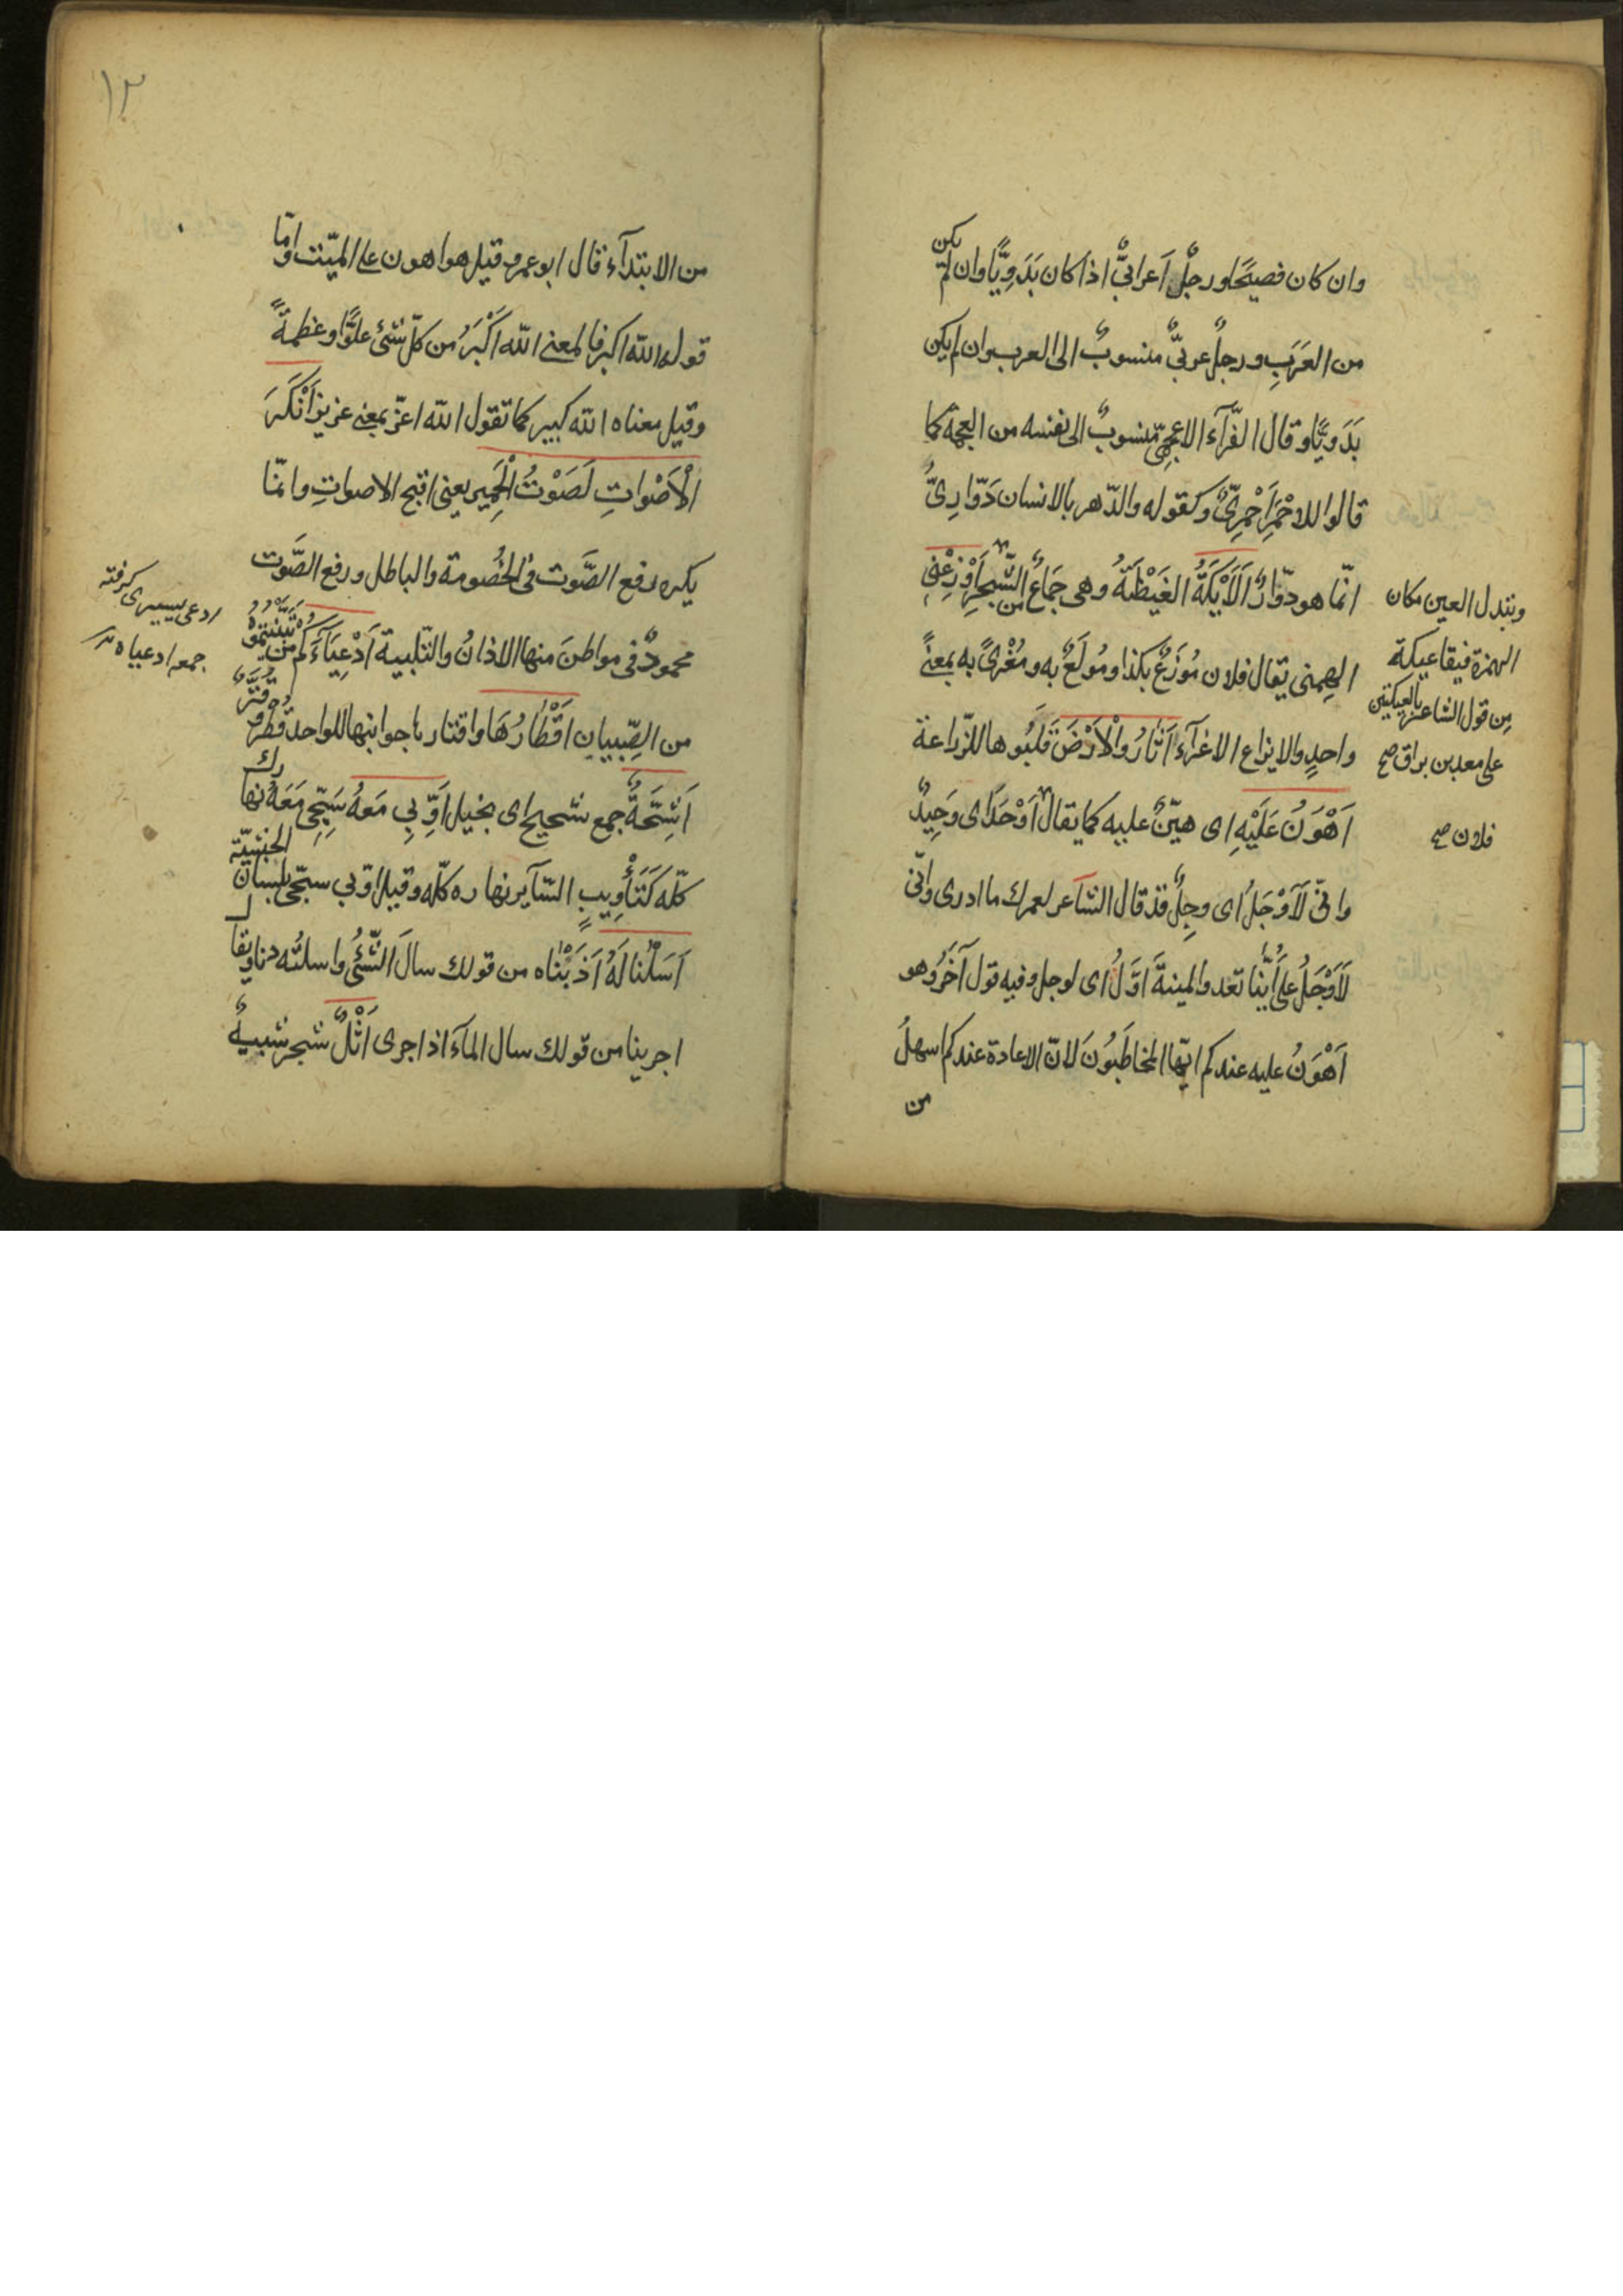 وان كان فصيحًا ورجلٌ اَعرابىٌّ اذا كان بَدَوِيًّا وان لم يكن
من العَرَبِ ورجلٌ عربىٌّ منسوبٌ الى العرب وان لم يكن
بَدَويًّا وقال الفرّآء الاعجمىّ منسوبٌ الى نفسه من العجمة كما
قالوا للاحْمَرِ اَحْمَرِىٌّ وكقوله والدّهر بالانسان دَوّارِىُّ
انّما هو دوّارٌ اَلْاَيْكَةُ الغَيْضَةُ وهى جَمَاعٌ من الشّجرِ اَوْزِعْنِى
الهِمنى يقال فلان مُوْزَعٌ بكذا ومُولَعٌ به ومُغْرىً به بمعنىً
واحدٍ والايزاع الاغرآء اَثَارُوا الْاَرْضَ قَلَبُوها للزّراعة
اَهْوَنُ عَلَيْهِ اى هيّنٌ عليه كما يقال اَوْحَدُ اى وَحِيدٌ
وانّى لَاَوْجَلُ اى وجِلٌ قد قال الشاعر لعمرك ما ادرى وانّى
لَاَوْجَلُ على اَيّنا تعد والمنيةَ اوّلُ اى لوجل وفيه قول آخَرُ وهو
اَهْوَنُ عليه عندكم ايّها المخاطَبُونَ لانّ الاعادة عندكم اسهلُ
من
وتبدل العين مكان
الهمزة فيقا عيكة
من قول الشاعر بالعيكتين
على معد بن براق صح
فلان صح
١٢
من الابتدآء قال ابو عمرو قيل هو اهون على الميّت وامّا
قوله الله اكبر فالمعنى الله اَكْبَرُ من كلّ شئ علوًّا وعظمةً
وقيل معناه الله كبير كما تقول الله اعزّ بمعنى عزيز اَنْكَرَ
الْاَصْواتِ لَصَوْتُ الْحَمِير يعنى اقبح الاصواتِ وانّما
يكره رفع الصَّوت فى الخُصومة والباطل ورفع الصَّوت
محمودٌ فى مواطنَ منها الاذانُ والتّلبية اَدْعِيَآءَكُم من تَبَنَّيْتُمُوْهُ
من الصِّبيان اَقْطَارُهَا واقتارها جوانبها للواحد قُطْرٌ وقُتْرٌ
اَشِحَّةً جمع شحيح اى بخيل اَوِّبِى مَعَهُ سَبِّحِى مَعَهُ نهارك
كلّه كَتَأْوِيبِ السّآير نهاره كلّه وقيل اوّبى سبّحى بلسان الحبشيّة
اَسَلْنا لَهُ اَذَبْنَاه من قولك سالَ الشّئُ واسلتُه انا ويقال
اجرينا من قولك سال المآءَ اذا جرى اَثْلٌ شجر شبيهٌ
ادعى بسيرى كرفته
جمعه ادعياه